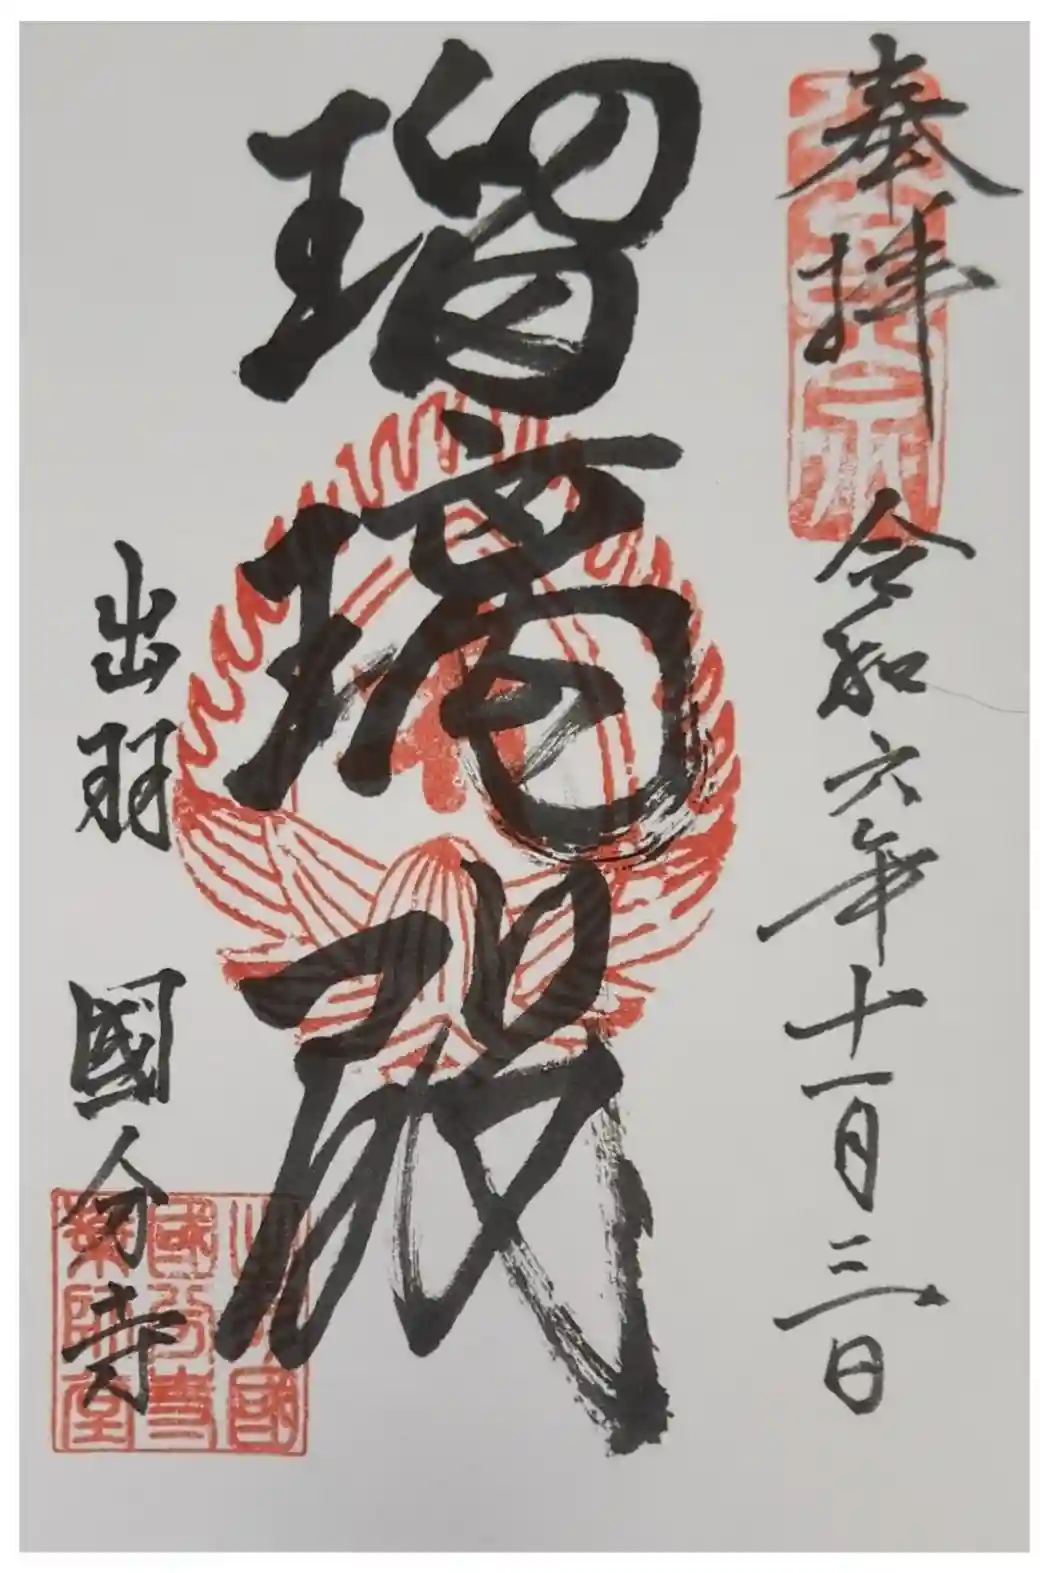 奉拝
令和六年十一月三日
瑠璃殿
出羽 國分寺
國
國分寺
薬師堂